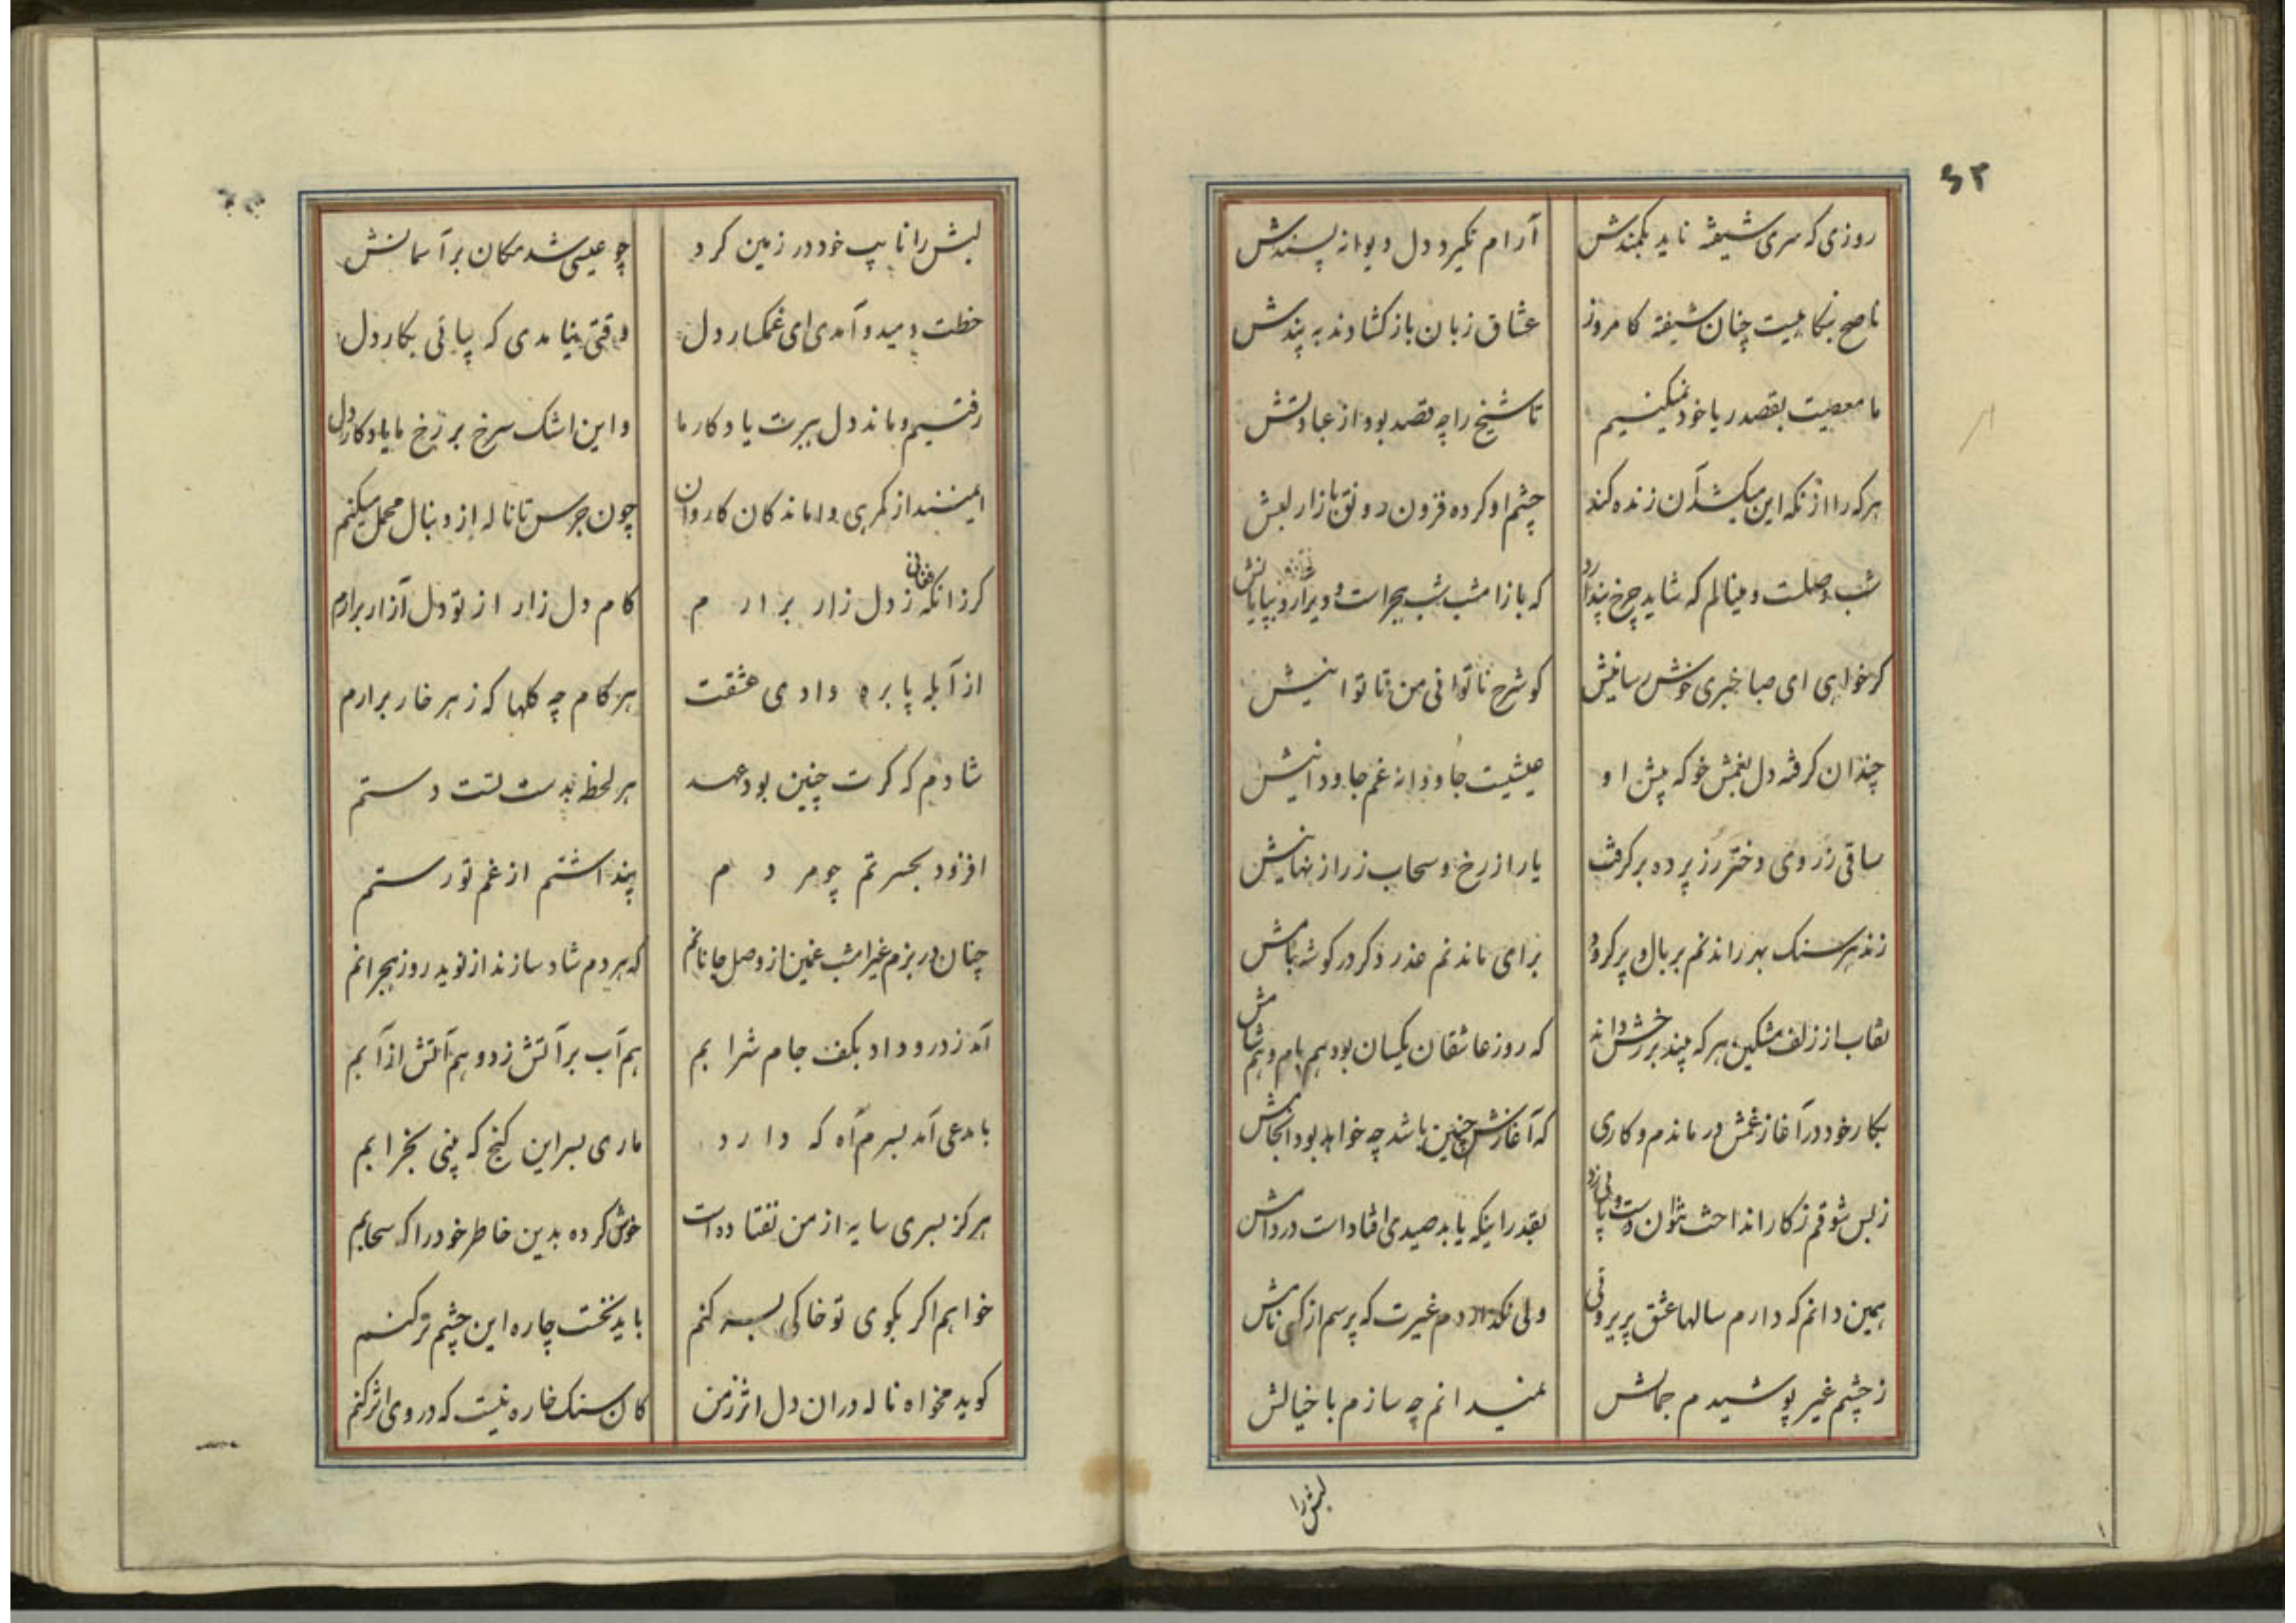 ۶۳
روزی که سری شیفته ناید بکمندش آرام نگیرد دل دیوانه پسندش
ناصح بنکاهیست چنان شیفته کامروز عشاق زبان باز کشادند به پندش
ما معصیت بقصد ریا خود نمیکنیم تا شیخ را چه قصد بود از عبادتش
هر که را از نکه این میکشد آن زنده کند چشم او کرده فزون رونق بازار لبش
شب وصلت و مینالم که شاید چرخ پندارد که باز امشب شب هجر است و دیر آرد بپایانش
کر خواهی ای صبا خبری خوش رسانیش کو شرح ناتوانی من تا توانیش
چندان کرفته دل بغمش خو که پیش او عیشیست جاودانه غم جاودانیش
ساقی ز روی دختر رز پرده بر کرفت یا راز رخ و سحاب زراز نهانیش
زند هر سنک بهر راندنم بر بال و پر کردد برای ماندنم عذر دکر در کوشه بامش
نقاب از زلف مشکین هر که بیند بر رخش داند که روز عاشقان یکسان بود هم بام و هم شامش
بکار خود در آغاز غمش در ماندم و کاری که آغازش چنین باشد چه خواهد بود انجامش
ز بس شوقم ز کار انداخت نتوان دست و پائی زد بقدر اینکه یابد صیدی افتاد است در دامش
همین دانم که دارم سالها عشق پریروئی ولی نکذاردم غیرت که پرسم از کسی نامش
ز چشم غیر پوشیدم جمالش نمیدانم چه سازم با خیالش
لبش را
لبش را نایب خود در زمین کرد چو عیسی شد مکان بر آسمانش
خطت دمید و آمدی ای غمکسار دل وقتی نیامدی که بیائی بکار دل
رفتیم و ماند دل ببرت یادکار ما و این اشک سرخ بر رخ ما یادکار دل
ایمنند از کمرهی واماندکان کاروان چون جرس تا ناله از دنبال محمل میکنم
کر زانکه فغانی ز دل زار برارم کام دل زار از تو دل آزار برارم
از آبله پا بره وادی عشقت هر کام چه کلها که ز هر خار برارم
شادم که کرت چنین بود عهد هر لحظه بدست تست دستم
افزود بحسرتم چو مردم پنداشتم از غم تو رستم
چنان در بزم غیر امشب غمین از وصل جانانم که هر دم شاد سازند از نوید روز هجرانم
آمد ز در و داد بکف جام شرابم هم آب بر آتش زد و هم آتش از آبم
با مدعی آمد بسرم آه که دارد ماری بسر این کنج که بینی بخرابم
هرکز بسری سایه از من نفتاده است خوش کرده بدین خاطر خود را که سحابم
خواهم اکر بکوی تو خاکی بسر کنم باید نخست چاره این چشم تر کنم
کوید مخواه ناله دران دل اثر ز من کان سنک خاره نیست که در وی اثر کنم